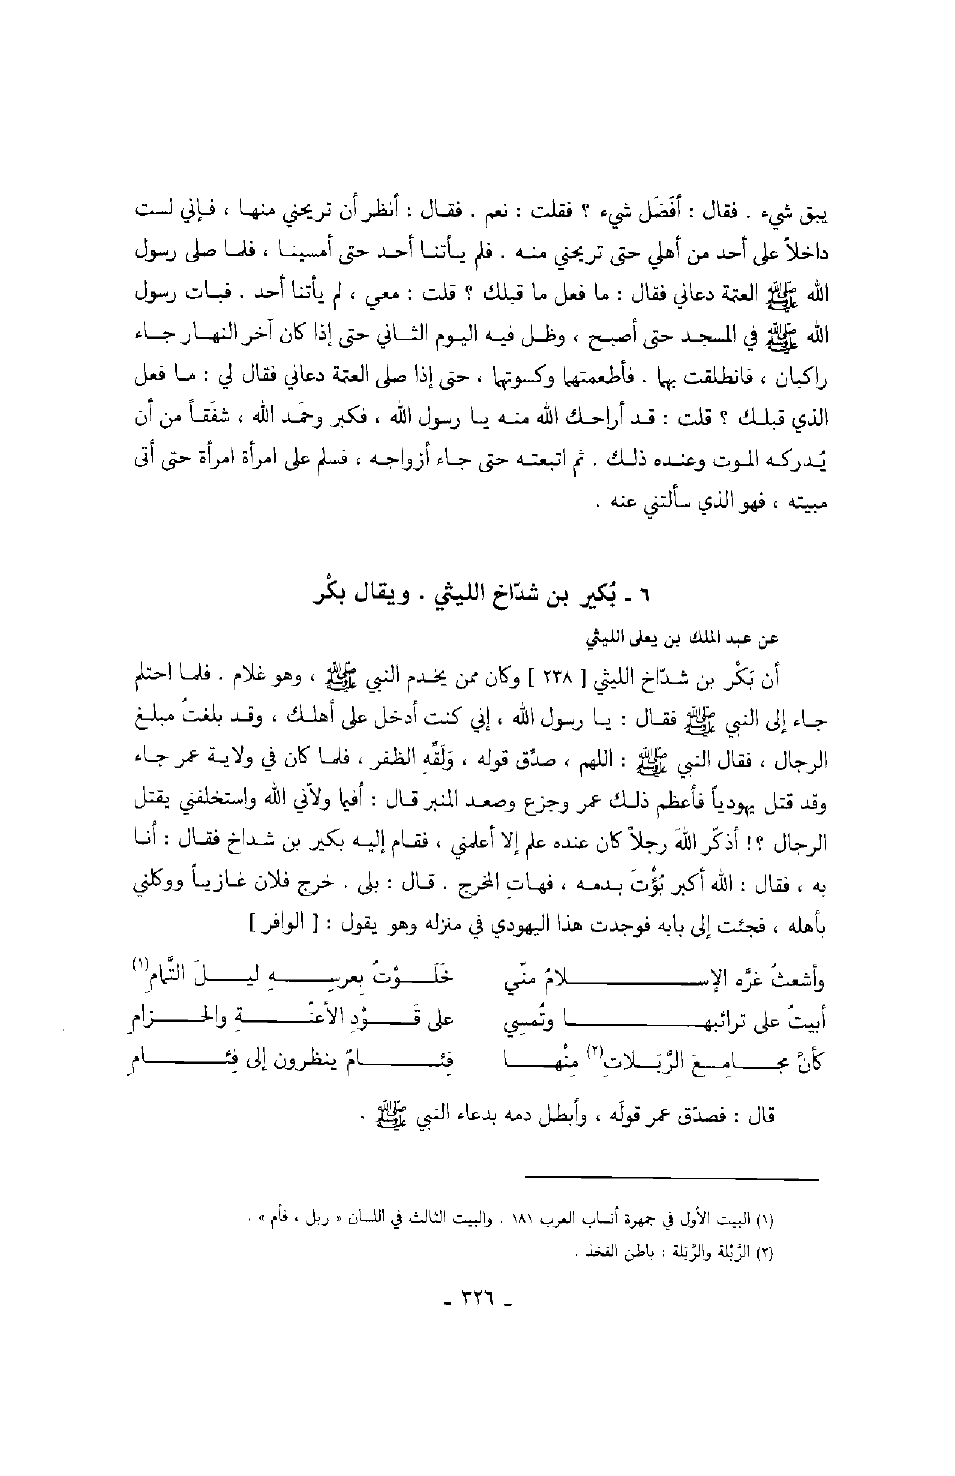 يبق شيء . فقال : أفَضَل شيء ؟ فقلت : نعم . فقال : أنظر أن تريحني منها ، فإني لست
داخلاً على أحد من أهلي حتى تريحني منه . فلم يأتنا أحد حتى أمسينا ، فلما صلى رسول
الله ﷺ العتمة دعاني فقال : ما فعل ما قبلك ؟ قلت : معي ، لم يأتنا أحد . فبات رسول
الله ﷺ في المسجد حتى أصبح ، وظل فيه اليوم الثاني حتى إذا كان آخر النهار جاء
راكبان ، فانطلقت بها . فأطعمتها وكسوتها ، حتى إذا صلى العتمة دعاني فقال لي : ما فعل
الذي قبلك ؟ قلت : قد أراحك الله منه يا رسول الله ، فكبر وحَمد الله ، شفَقاً من أن
يُدركه الموت وعنده ذلك . ثم اتبعته حتى جاء أزواجه ، فسلم على امرأة امرأة حتى أتى
مبيته ، فهو الذي سألتني عنه .
٦ ـ بُكير بن شدّاخ الليثي . ويقال بكْر
عن عبد الملك بن يعلى الليثي
أن بَكْر بن شدّاخ الليثي [ ٢٣٨ ] وكان ممن يخدم النبي ﷺ ، وهو غلام . فلما احتلم
جاء إلى النبي ﷺ فقال : يا رسول الله ، إني كنت أدخل على أهلك ، وقد بلغتُ مبلغ
الرجال ، فقال النبي ﷺ : اللهم ، صدّق قوله ، وَلَقِّهِ الظفر ، فلما كان في ولاية عمر جاء
وقد قتل يهودياً فأعظم ذلك عمر وجزع وصعد المنبر قال : أفيما ولاّني الله واستخلفني يقتل
الرجال ؟! أذكّر اللهَ رجلاً كان عنده علم إلا أعلمني ، فقام إليه بكير بن شداخ فقال : أنا
به ، فقال : الله أكبر بُؤْتَ بدمه ، فهاتِ المخرج . قال : بلى . خرج فلان غازياً ووكلني
بأهله ، فجئت إلى بابه فوجدت هذا اليهودي في منزله وهو يقول : [ الوافر ]
وأشعثُ غرَّه الإسلامُ منّي خَلَوْتُ بعرسِهِ ليلَ التَّمامِ(١)
أبيتُ على ترائبها وتُمسِي على قَوْدِ الأعنّةِ والحزامِ
كأنَّ مجامعَ الرَّبَلاتِ(٢) منْها فِئامٌ ينظرون إلى فِئامِ
قال : فصدّق عمر قولَه ، وأبطل دمه بدعاء النبي ﷺ .
(١) البيت الأول في جمهرة أنساب العرب ١٨١ . والبيت الثالث في اللسان « ربل ، فأم » .
(٢) الرَّبْلة والرَّبَلة : باطن الفخذ .
ـ ٣٢٦ ـ